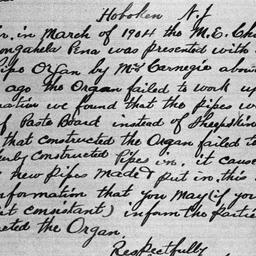 Hoboken N.J.
r. in March of 1904 the M.E. Chu
ongahela Pena was presented with
ipe Organ by Mr Carnegie abou
ago the Organ failed to work up
nation we found that the pipes w
of Paste Board instead of Sheepskin
that constructed the Organ failed to
erly constructed Pipes in, it cause
new pipes made & put in, this
information that you May (if yo
it consistant) inform the Partie
cted the Organ.
Respectfully